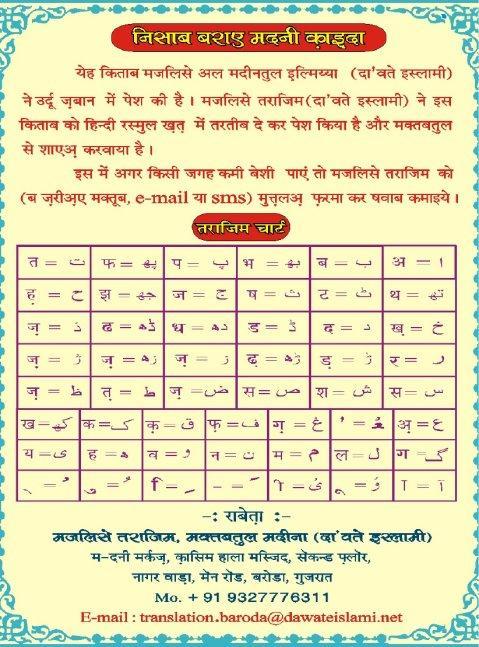 निसाब बराए मदनी क़ाइदा
येह किताब मजलिसे अल मदीनतुल इल्मिय्या (दा'वते इस्लामी)
ने उर्दू ज़बान में पेश की है । मजलिसे तराजिम(दा'वते इस्लामी) ने इस
किताब को हिन्दी रस्मुल ख़त़ में तरतीब दे कर पेश किया है और मक्तबतुल
से शाएअ़ करवाया है ।
इस में अगर किसी जगह कमी बेशी पाएं तो मजलिसे तराजिम को
(ब ज़रीअ़ए मक्तूब, e-mail या sms) मुत़्त़लअ़ फ़रमा कर षवाब कमाइये ।
तराजिम चार्ट
त = ت फ = پھ प = پ भ = بھ ब = ب अ = ا
ह़ = ح झ = جھ ज = ج ष = ث ट = ٹ थ = تھ
ज़ = ذ ढ = ڈھ ध = دھ ड = ڈ द = د ख़ = خ
ज़ = ژ ज़ = زھ ज़ = ز ढ़ = ڑھ ड़ = ڑ र = ر
ज़ = ظ त़ = ط ज़ = ض स = ص श = ش स = س
ख = کھ क = ک क़ = ق फ़ = ف ग़ = غ अ़ = ع
य = ی ह = ہ व = و न = ن म = م ल = ل ग = گ
आ = آ
-: राबेता़ :-
मजलिसे तराजिम, मक्तबतुल मदीना (दा'वते इस्लामी)
म-दनी मर्कज़, क़ासिम हाला मस्जिद, सेकन्ड फ्लोर,
नागर वाड़ा, मेन रोड, बरोडा, गुजरात
Mo. + 91 9327776311
E-mail : translation.baroda@dawateislami.net